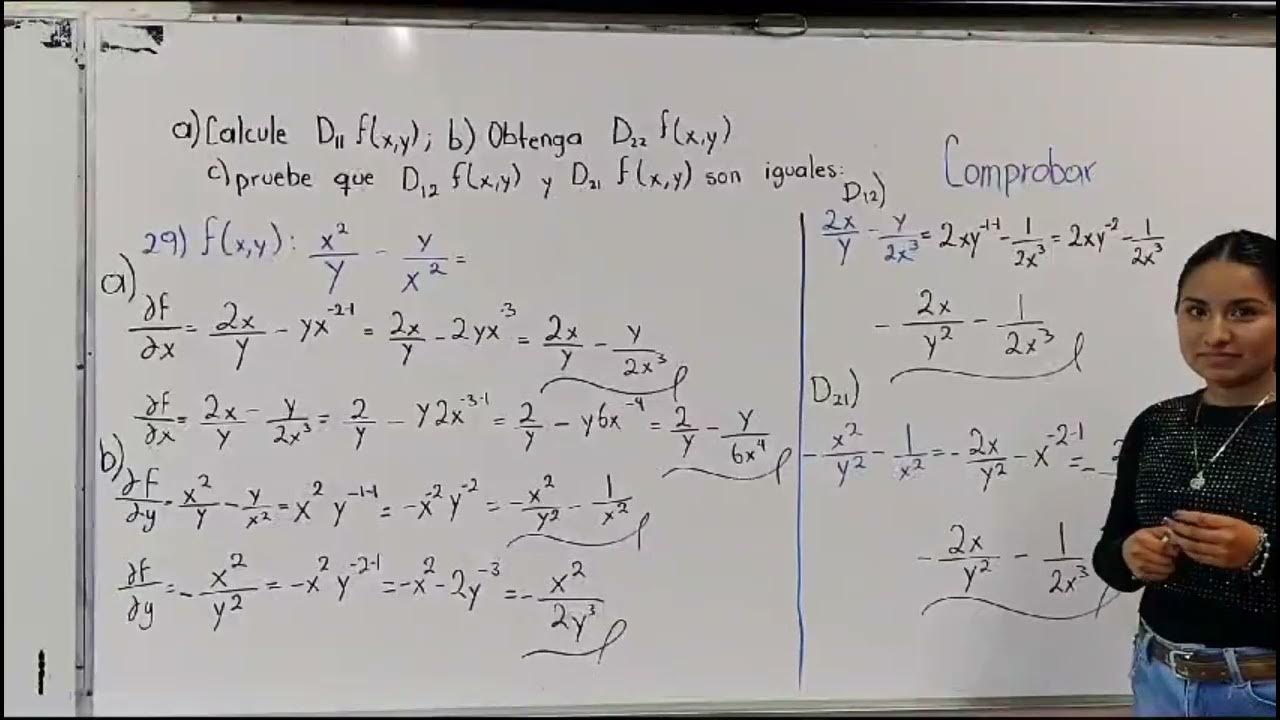 a) Calcule D₁₁ f(x,y); b) Obtenga D₂₂ f(x,y)
c) pruebe que D₁₂ f(x,y) y D₂₁ f(x,y) son iguales:
29) f(x,y): x²/y - y/x² =
a)
∂f/∂x = 2x/y - yx⁻²⁻¹ = 2x/y - 2yx⁻³ = 2x/y - y/2x³
∂f/∂x = 2x/y - y/2x³ = 2/y - y2x⁻³⁻¹ = 2/y - y6x⁻⁴ = 2/y - y/6x⁴
b)
∂f/∂y = x²/y - y/x² = x² y⁻¹⁻¹ = -x⁻² y⁻² = -x²/y² - 1/x²
∂f/∂y = -x²/y² = -x² y⁻²⁻¹ = -x² - 2y⁻³ = -x²/2y³
Comprobar
D₁₂)
2x/y - y/2x³ = 2xy⁻¹⁻¹ - 1/2x³ = 2xy⁻² - 1/2x³
- 2x/y² - 1/2x³
D₂₁)
- x²/y² - 1/x² = - 2x/y² - x⁻²⁻¹ = -
- 2x/y² - 1/2x³